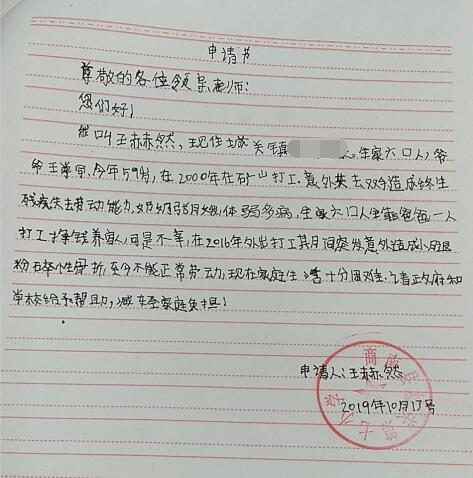 申请书
尊敬的各位领导,老师:
您们好!
我叫王赫然,现住城关镇 全家六口人,爷
爷王 今年59岁,在2000年在矿山打工,意外失去双 造成终生
残疾失去劳动能力,奶奶 体弱多病,全家六口人全靠爸爸一人
打工挣钱养家,可是不幸,在2016年外出打工其月间突发意外造成小腿
粉碎性骨折,至今不能正常劳动,现在家庭生活十分困难.请政府和
学校给予帮助,减轻家庭负担!
申请人:王赫然
2019年10月17号
商南县 第